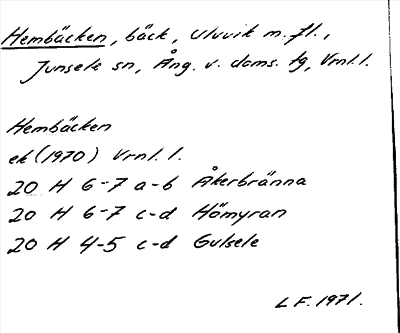 Hembäcken, bäck, Uluvik m. fl.,
Junsele sn, Ång. v. doms. tg, Vrnl. l.
Hembäcken
ek (1970) Vrnl. l.
20 H 6-7 a-b Åkerbränna
20 H 6-7 c-d Hömyran
20 H 4-5 c-d Gulsele
L F. 1971.